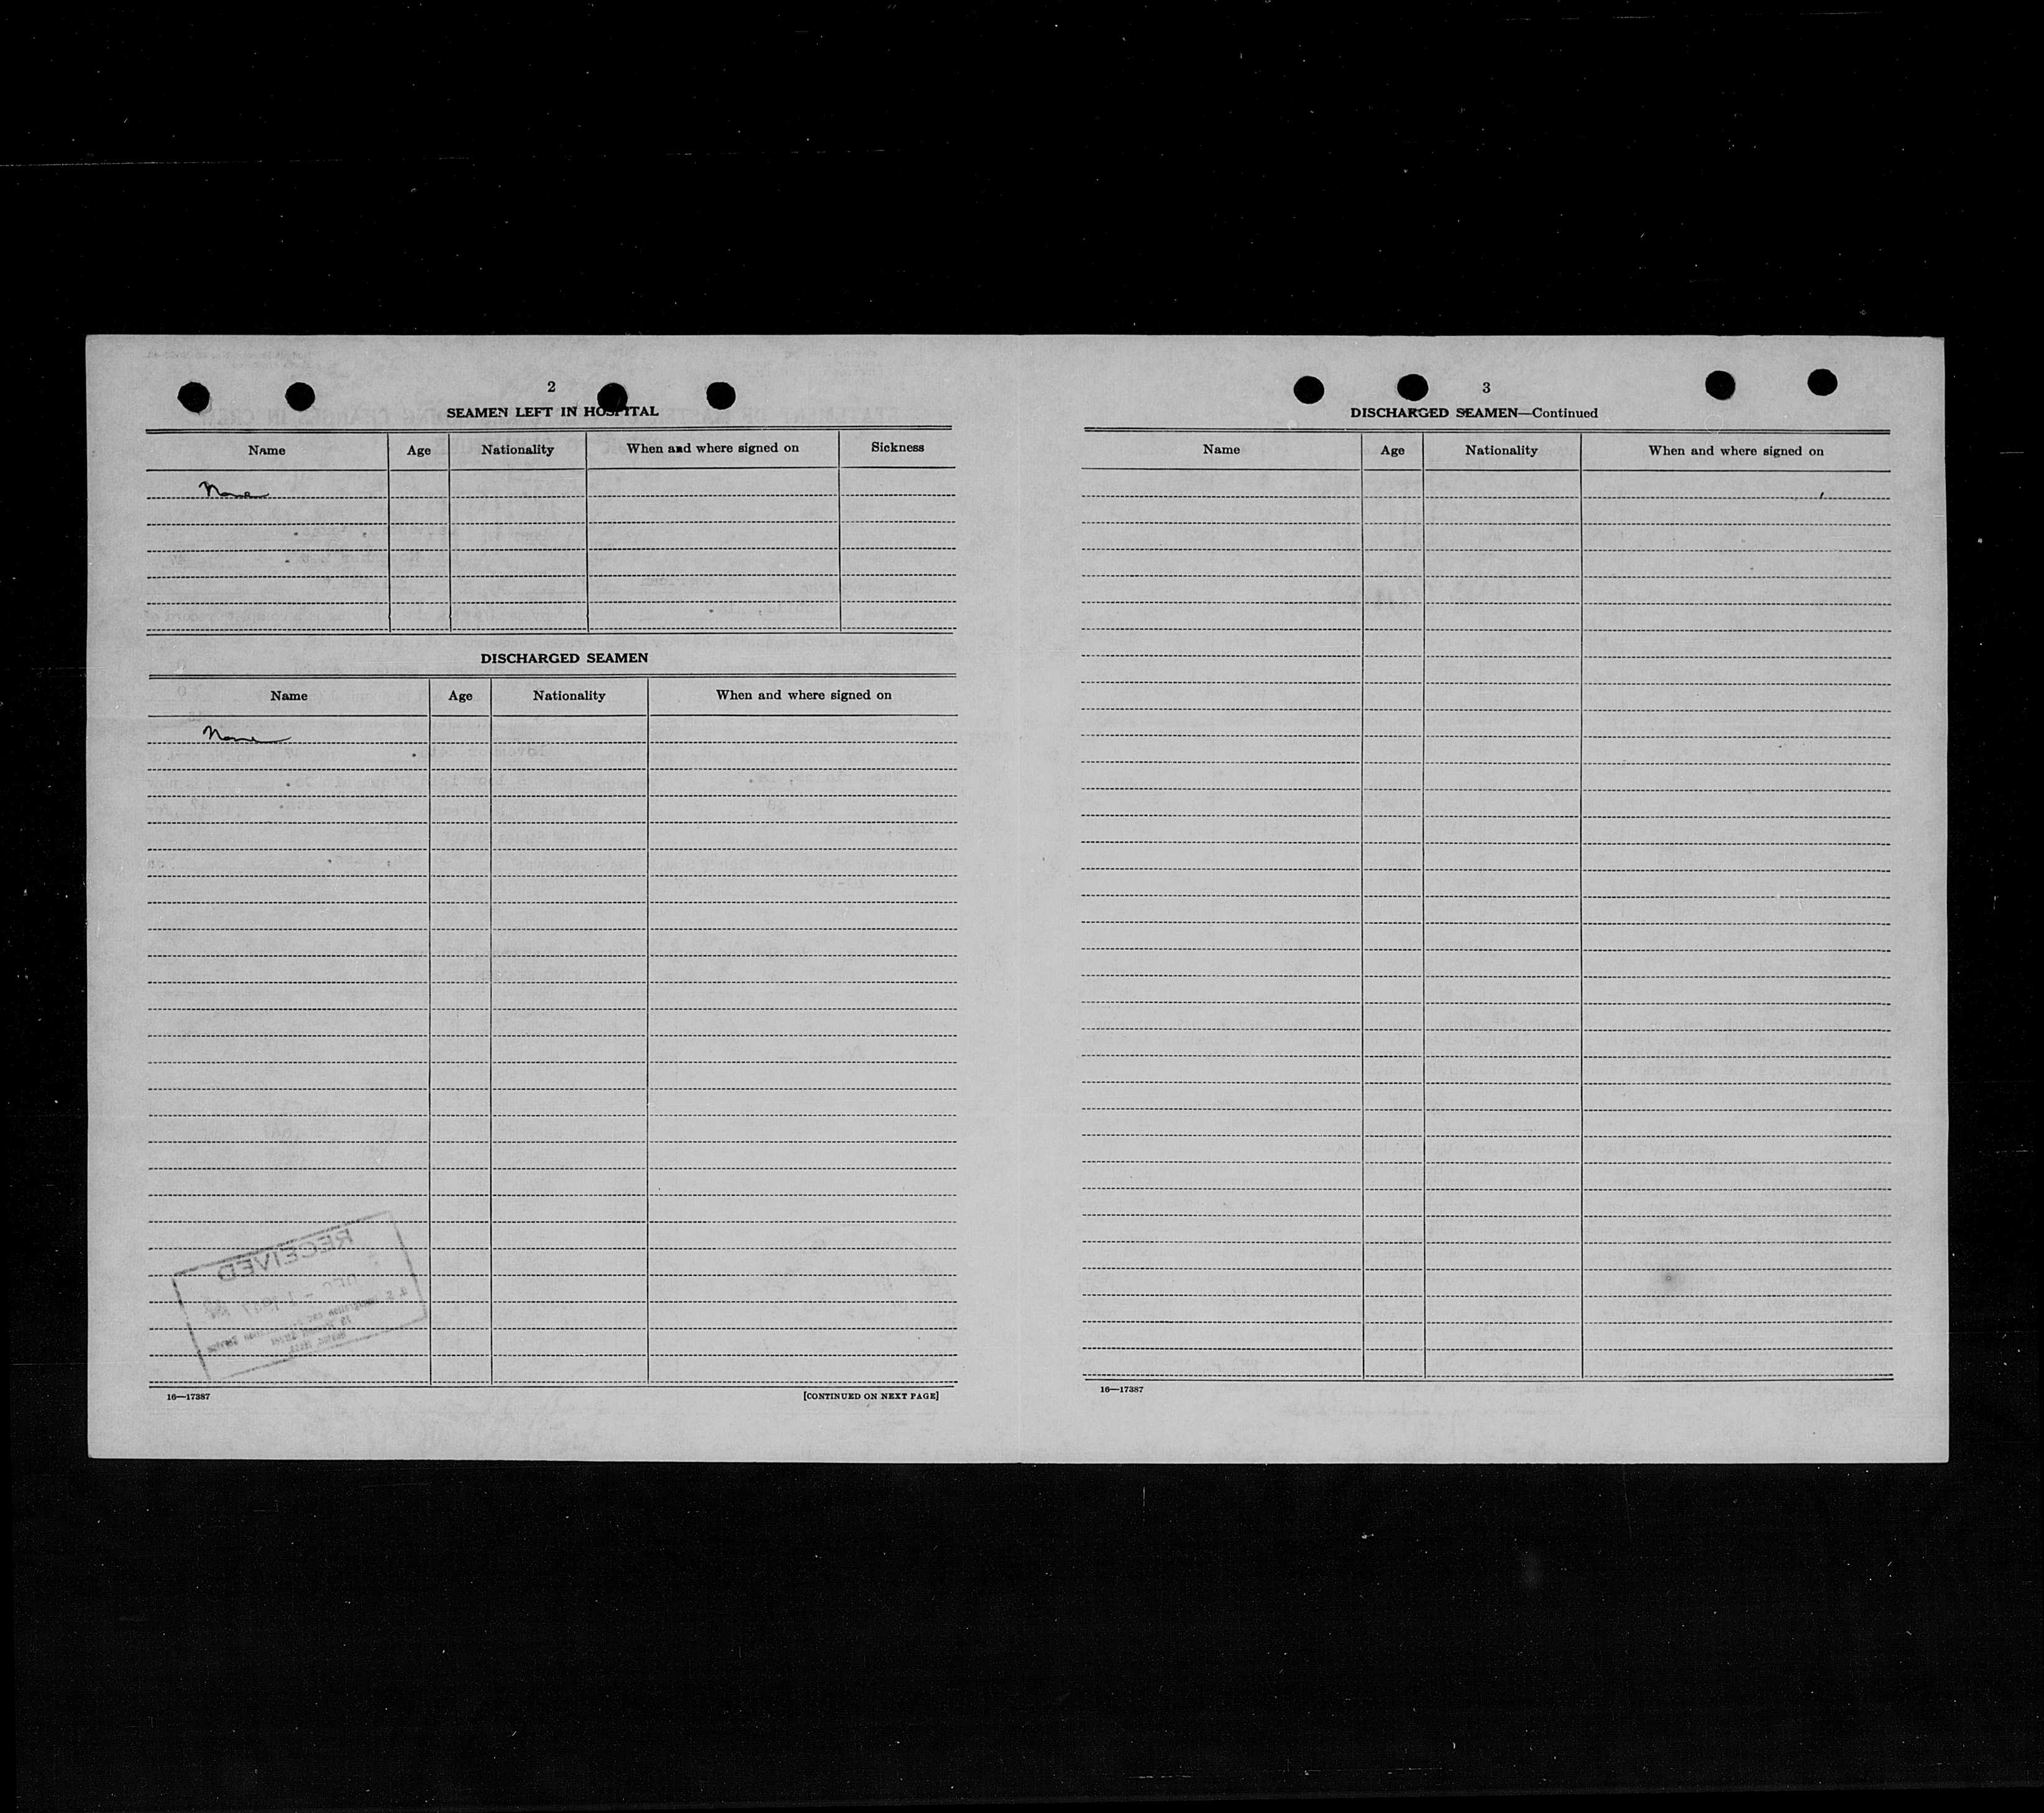 2
SEAMEN LEFT IN HOSPITAL
Name Age Nationality When and where signed on Sickness
None
DISCHARGED SEAMEN
Name Age Nationality When and where signed on
None
RECEIVED
16—17387 [CONTINUED ON NEXT PAGE]
3
DISCHARGED SEAMEN—Continued
Name Age Nationality When and where signed on
16—17387